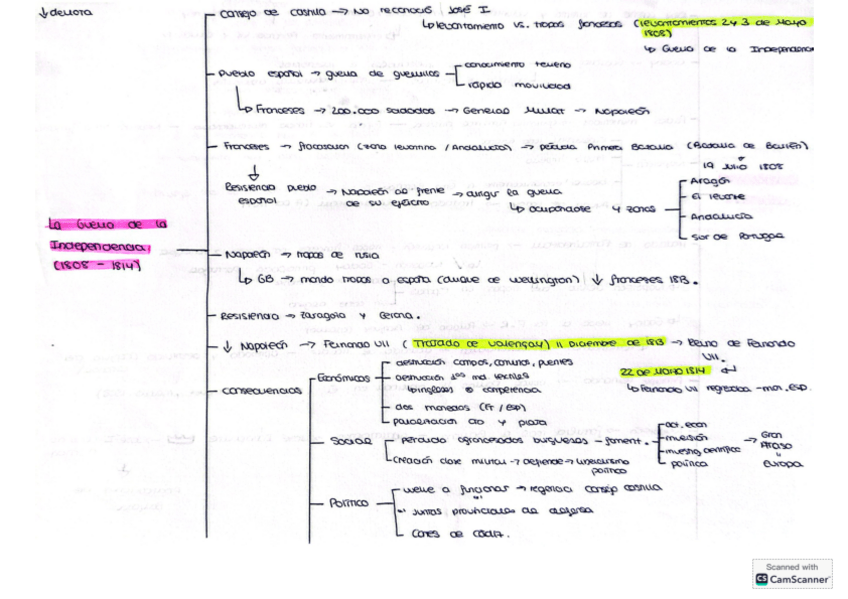 ↓ derrota
Consejo de Castilla → No reconoció José I
↳ levantamiento vs. tropas francesas (levantamientos 2 y 3 de Mayo
1808)
↳ Guerra de la Independencia
Pueblo español → guerra de guerrillas
conocimiento terreno
rápida movilidad
↳ Franceses → 200.000 soldados → General Murat → Napoleón
Franceses → fracasaron (zona levantina / Andalucía) → pérdida Primera Batalla (Batalla de Bailén)
19 Julio 1808
Resistencia pueblo
español
→ Napoleón al frente
de su ejército
→ dirigir la guerra
↳ ocupándose 4 zonas
Aragón
El levante
Andalucía
Sur de Portugal
La Guerra de la
Independencia,
(1808 - 1814)
Napoleón → tropas de rusia
↳ GB → mandó tropas a españa (duque de wellington) ↓ franceses 1813.
Resistencia → Zaragoza y Gerona.
↓ Napoleón → Fernando VII (Tratado de Valençay) 11 Diciembre de 1813 → Reino de Fernando
VII.
22 DE MARZO 1814 ↵
↳ Fernando VII regresaba - mon. esp.
consecuencias
Económicas
destrucción campos, caminos, puentes
destrucción textiles
↳ ingleses competencia
dos monedas (fr / esp)
paralización oro y plata
Social
Pérdida afrancesados burgueses - foment.
act. econ
inversión
científica
política
→ Gran
Atraso
Europa
Creación clase militar → defiende → liberalismo
político
Político
vuelve a funcionar → regencia consejo castilla
" juntas provinciales de defensa
Cortes de Cádiz.
Scanned with
CS CamScanner